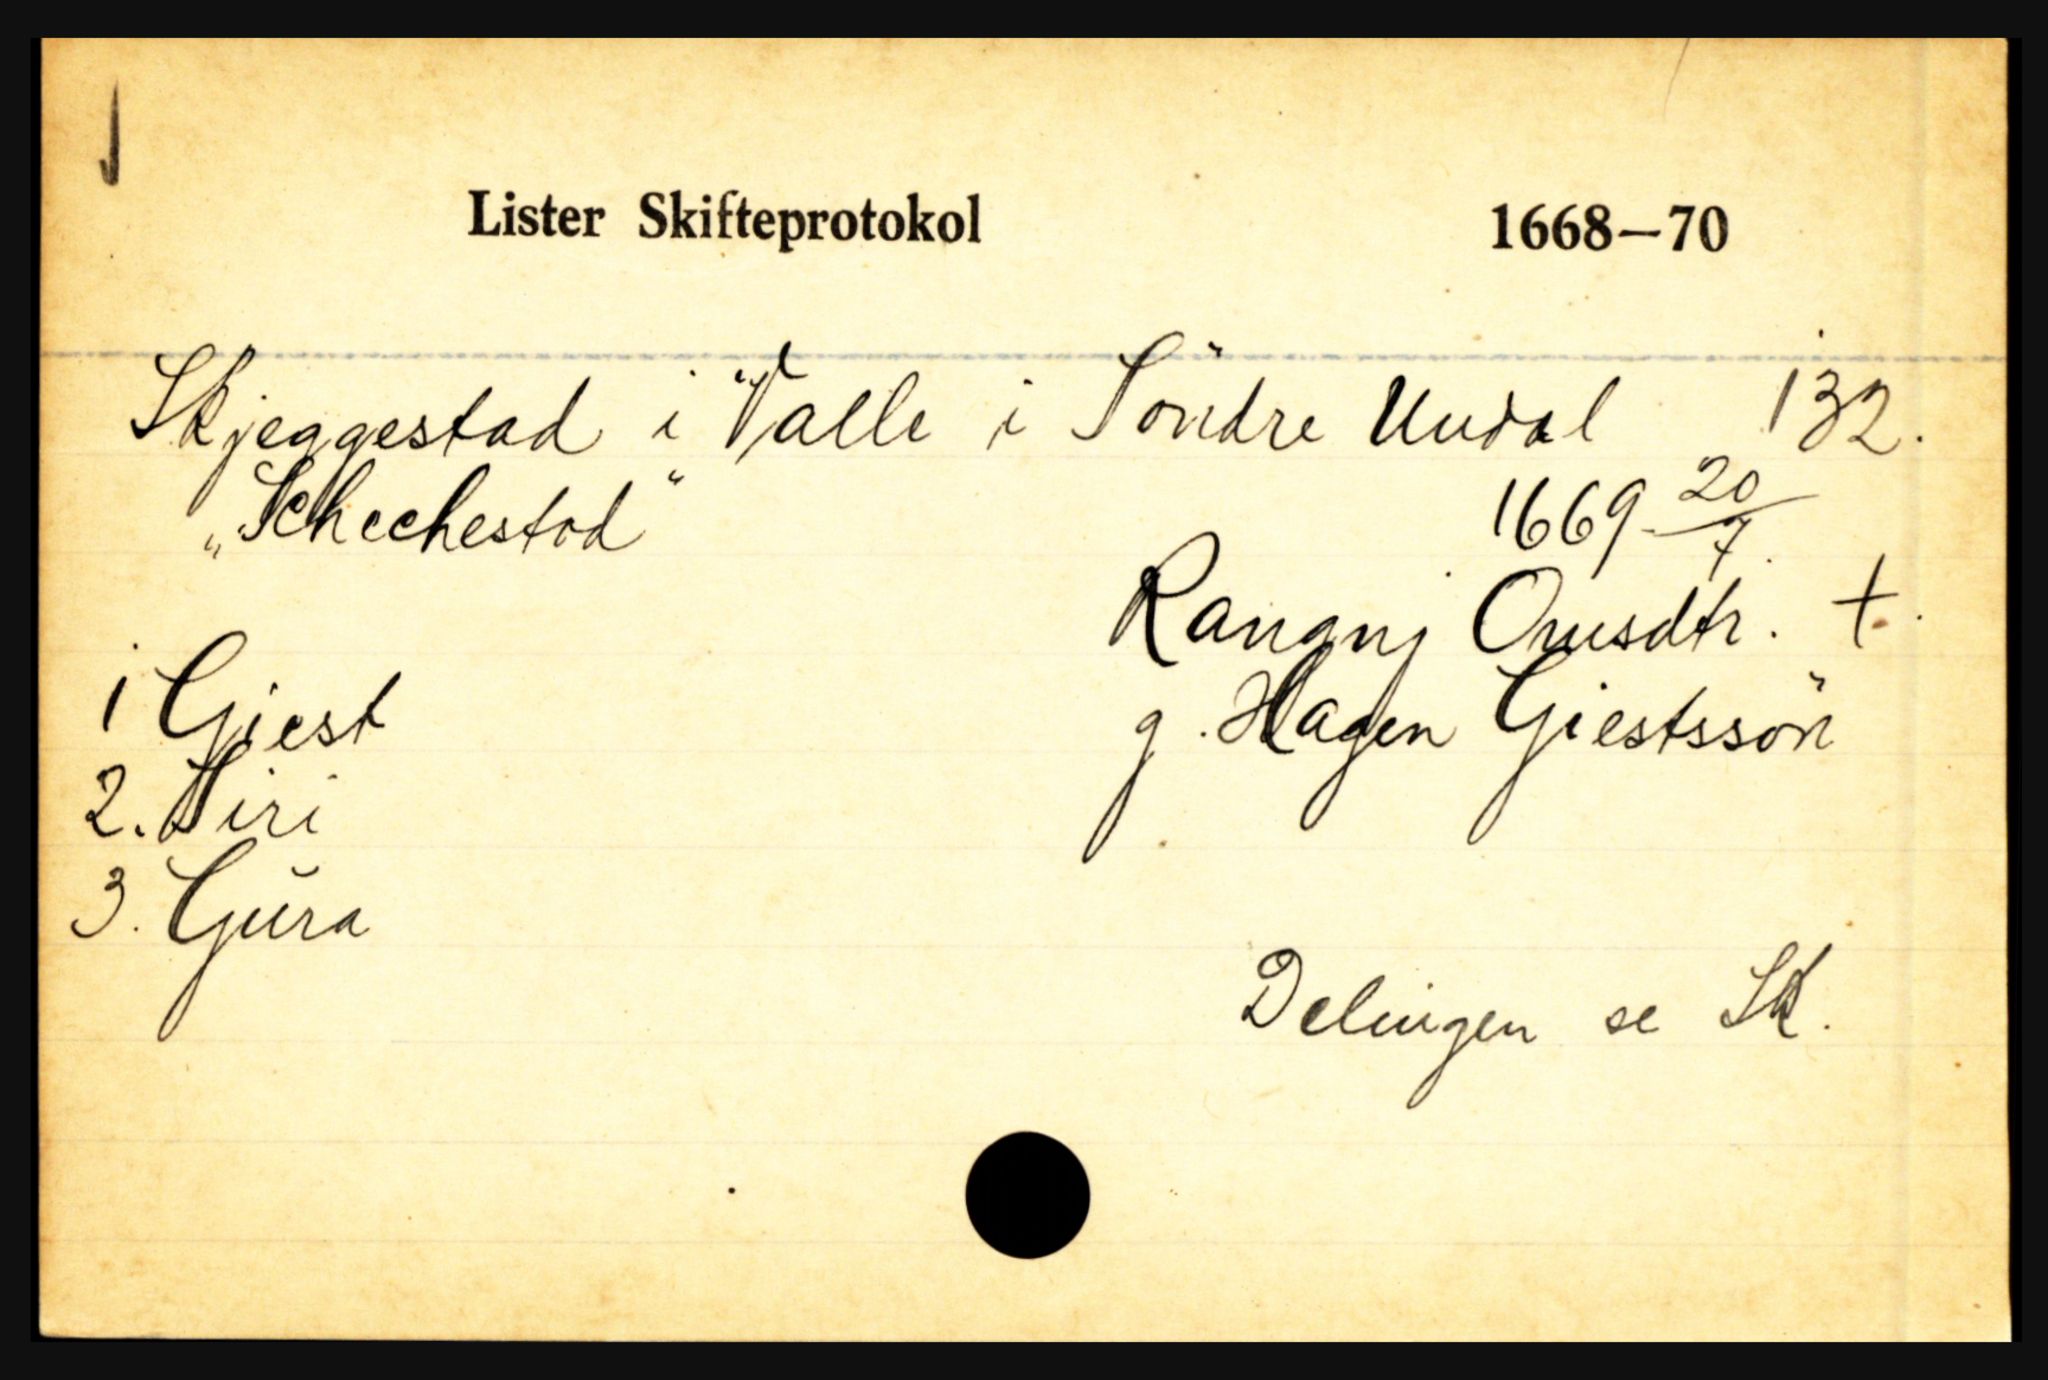 Lister Skifteprotokol 1668—70
Skjeggestad i Valle i Söndre Undal 132.
„Schechestad“
1669 20/7.
Rangnj Omsdtr. +.
g. Hagen Giestssön
1 Giest
2. Siri
3. Gŭra
Delingen se Sk.